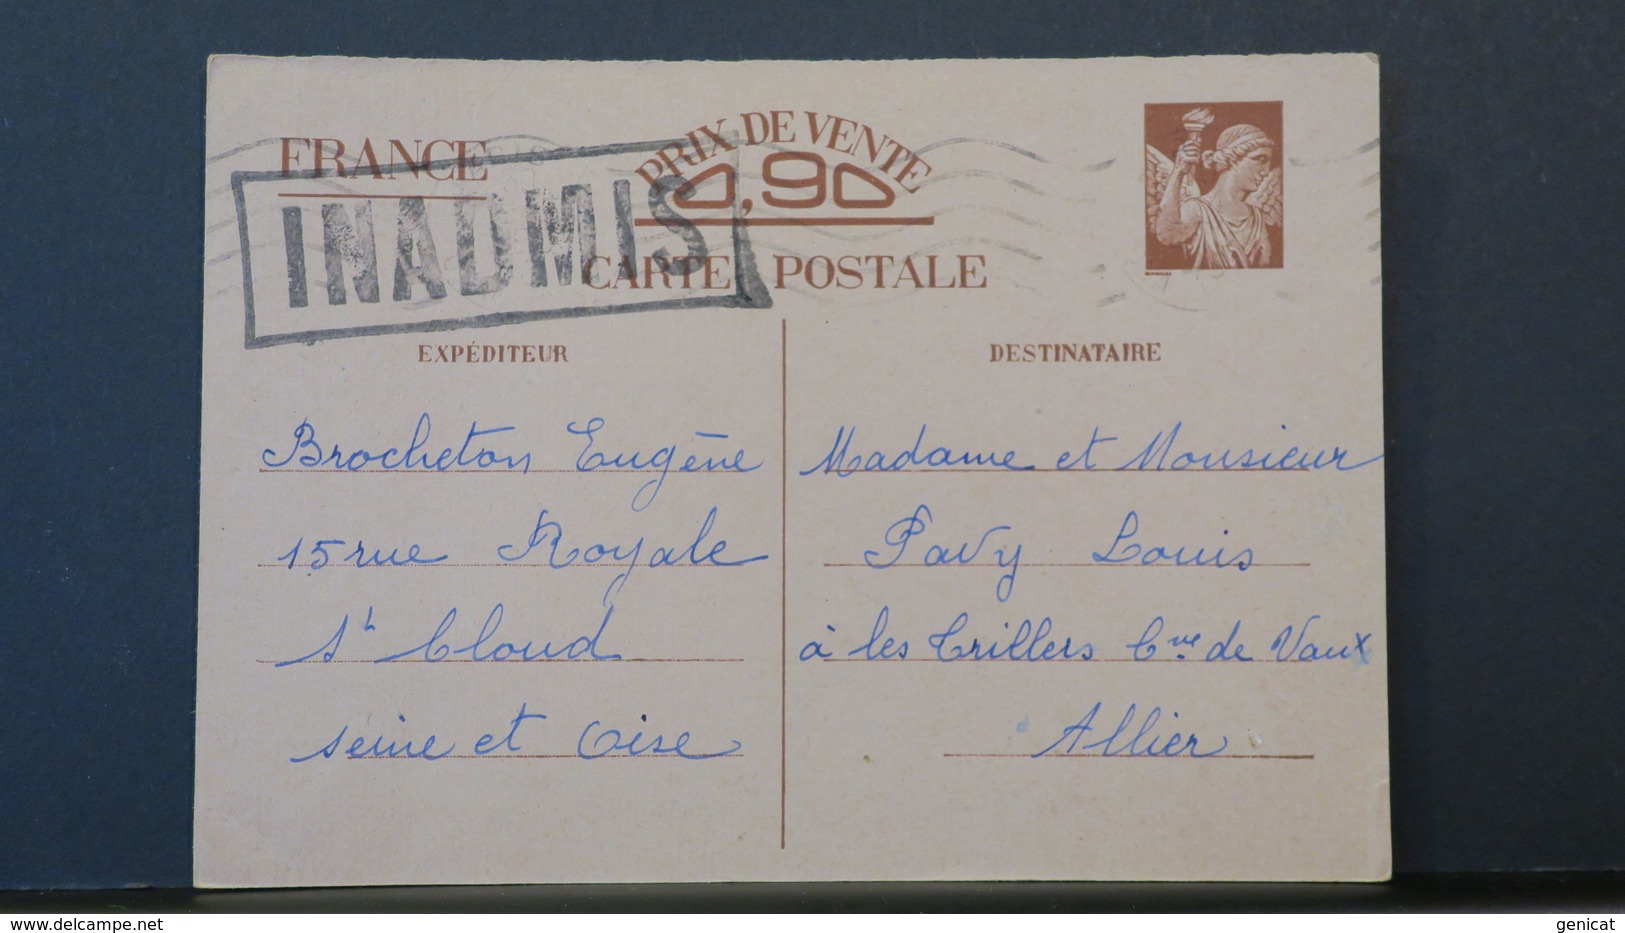 FRANCE
PRIX DE VENTE
0,90
INADMIS
CARTE POSTALE
EXPÉDITEUR
Brocheton Eugène
15 rue Royale
St Cloud
seine et Oise
DESTINATAIRE
Madame et Monsieur
Pavy Louis
à les Trillers Cne de Vaux
Allier
www.delcampe.net
genicat